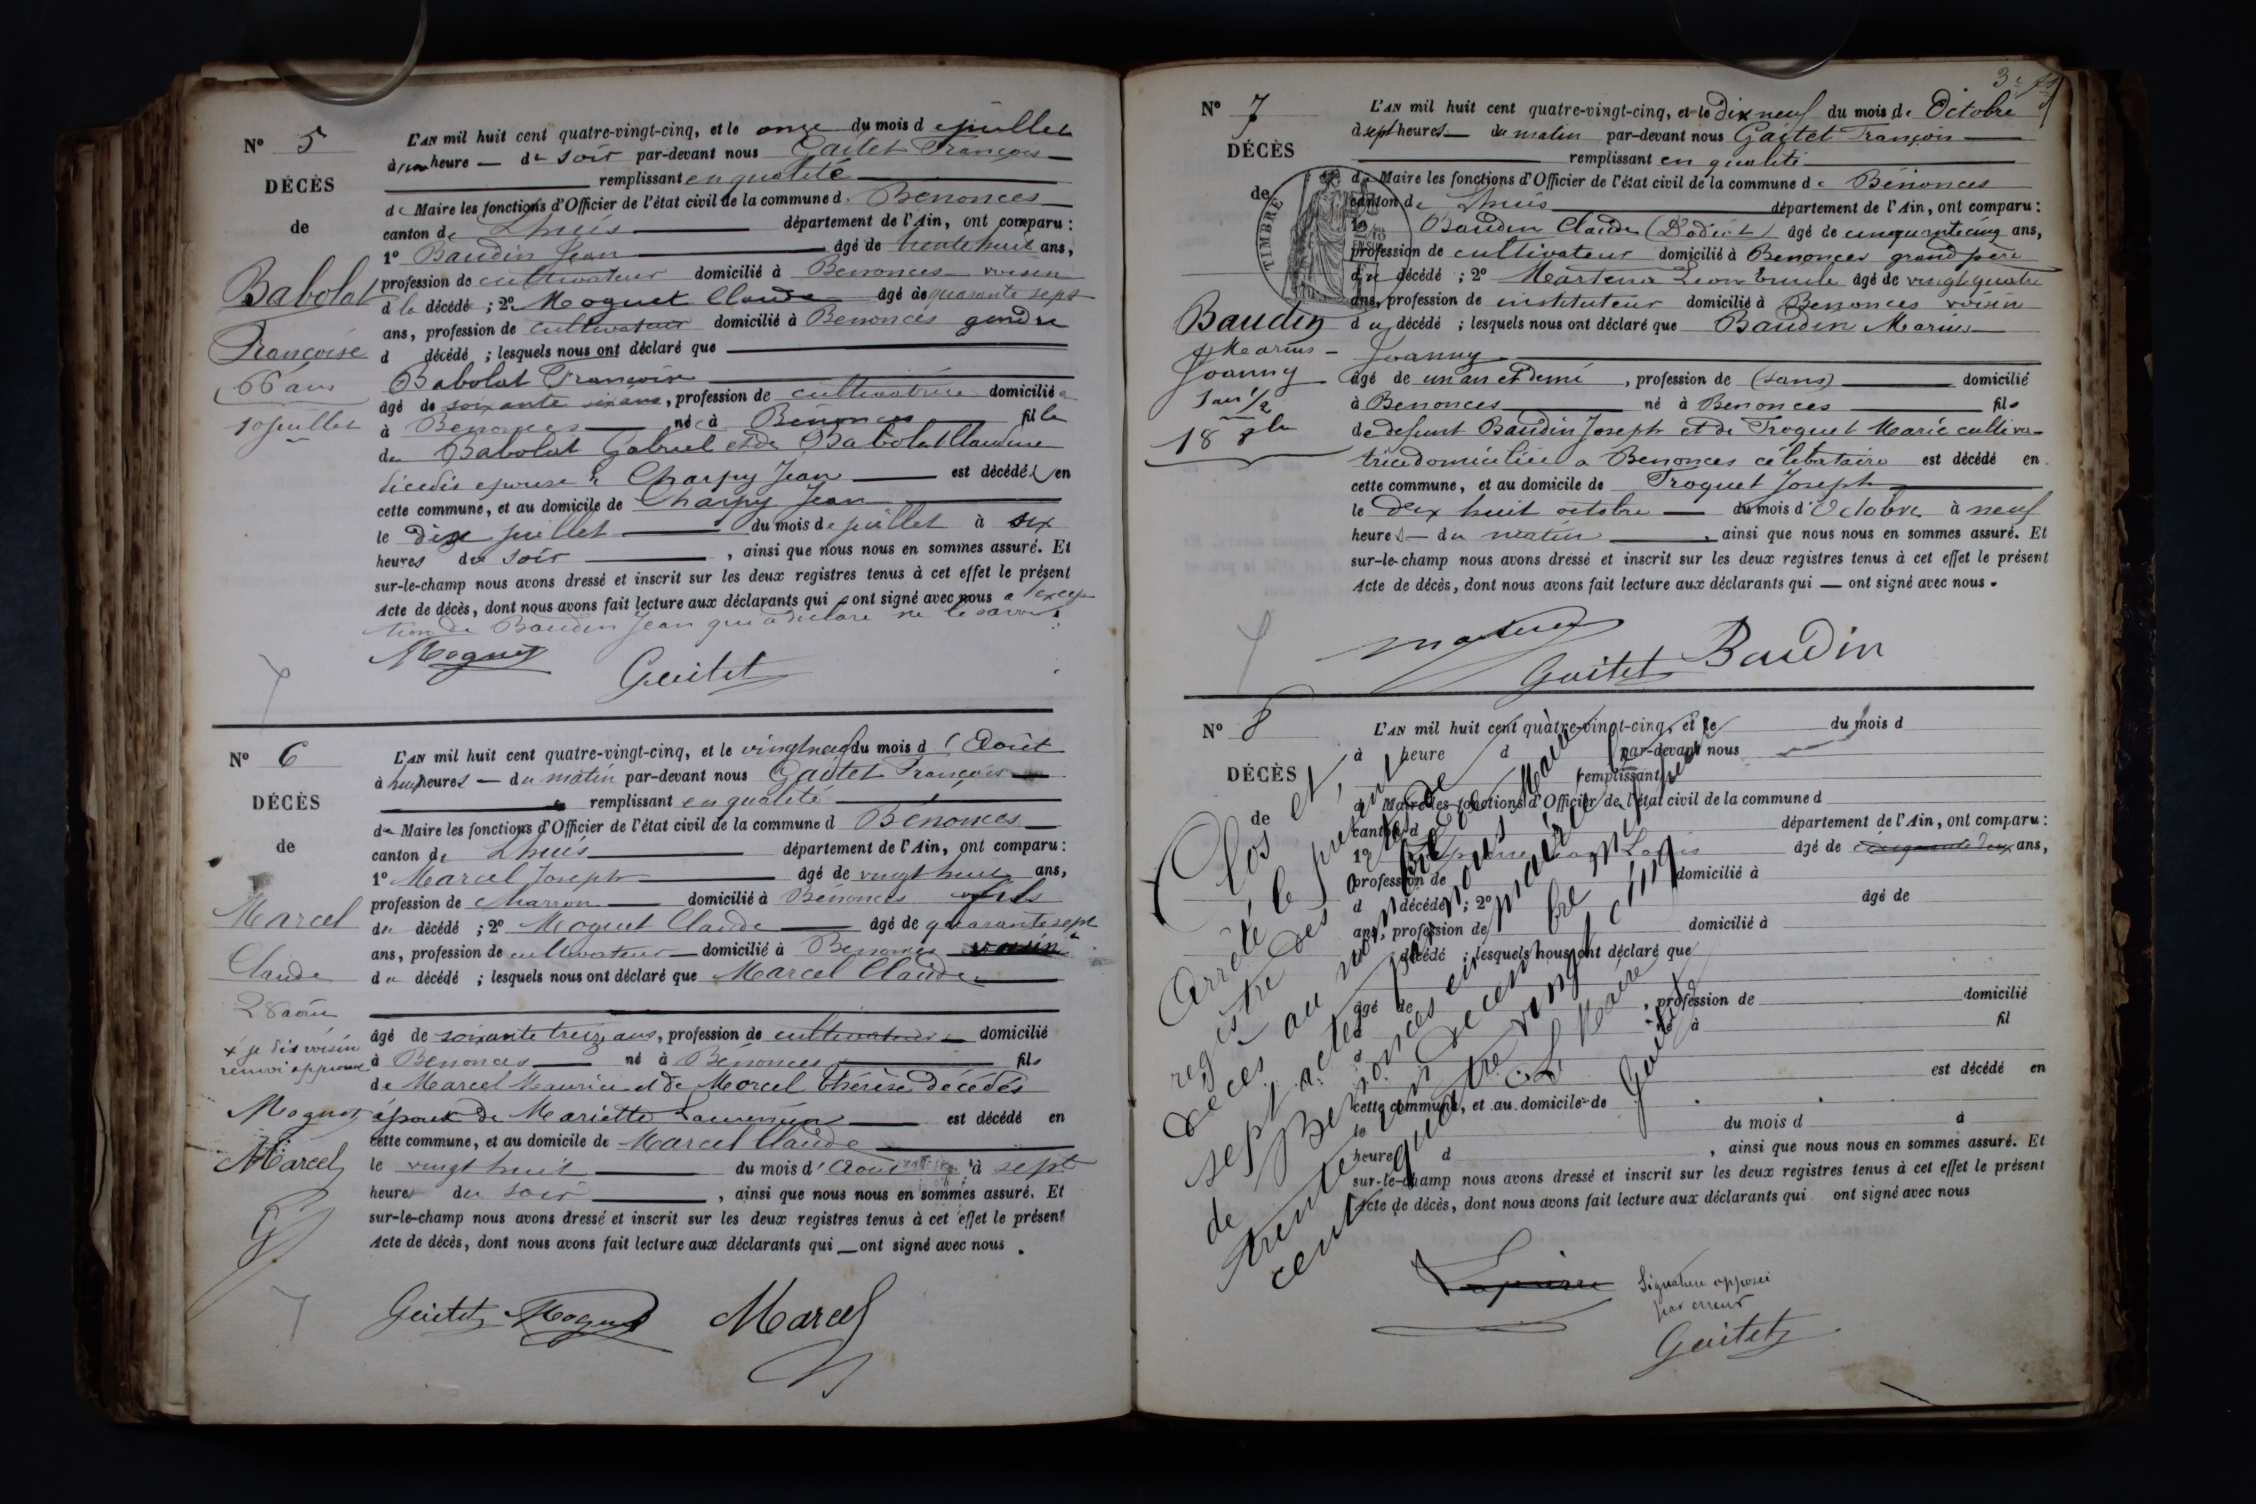 N° 5
DÉCÈS
de
Babolat
Françoise
66 ans
10 juillet
L'AN mil huit cent quatre-vingt-cinq, et le onze du mois de juillet
à une heure — du soir par-devant nous Gaitet François —
remplissant en qualité
de Maire les fonctions d'Officier de l'état civil de la commune de Benonces
canton de Lhuis département de l'Ain, ont comparu :
1° Baudin Jean âgé de trente huit ans,
profession de cultivateur domicilié à Benonces voisin
d la décédé ; 2° Moguet Claude âgé de quarante sept
ans, profession de cultivateur domicilié à Benonces gendre
d décédé ; lesquels nous ont déclaré que
Babolat Françoise
âgé de soixante six ans, profession de cultivatrice domicilié
à Benonces né à Benonces fille
de Babolat Gabriel et de Babolat Claudine
décédés épouse à Charpy Jean est décédée en
cette commune, et au domicile de Charpy Jean
le dix juillet du mois de juillet à six
heures du soir , ainsi que nous nous en sommes assuré. Et
sur-le-champ nous avons dressé et inscrit sur les deux registres tenus à cet effet le présent
Acte de décès, dont nous avons fait lecture aux déclarants qui ont signé avec nous a l'excep
tion de Baudin Jean qui a déclaré ne le savoir.
Moguet
Gaitet
N° 6
DÉCÈS
de
Marcel
Claude
28 août
x je dis voisin
renvoi approuvé
Moguet
Marcel
G
L'AN mil huit cent quatre-vingt-cinq, et le vingt neuf du mois d'Août
à heures — du matin par-devant nous Gaitet François
remplissant en qualité
de Maire les fonctions d'Officier de l'état civil de la commune d Bénonces
canton de Lhuis département de l'Ain, ont comparu :
1° Marcel Joseph âgé de vingt huit ans,
profession de charron domicilié à Bénonces fils
du décédé ; 2° Moguet Claude âgé de quarante sept
ans, profession de cultivateur domicilié à Benonces voisin x
du décédé ; lesquels nous ont déclaré que Marcel Claude
âgé de soixante treize ans, profession de cultivateur domicilié
à Benonces né à Benonces fils
de Marcel Maurice et de Marcel Thérèse décédés
époux de Mariette est décédé en
cette commune, et au domicile de Marcel Claude
le vingt huit du mois d'Août à sept
heures du soir , ainsi que nous nous en sommes assuré. Et
sur-le-champ nous avons dressé et inscrit sur les deux registres tenus à cet effet le présent
Acte de décès, dont nous avons fait lecture aux déclarants qui — ont signé avec nous .
Gaitet Moguet Marcel
N° 7
DÉCÈS
de
TIMBRE
Baudin
Marius
Joanny
1 an 1/2
18 8bre
L'AN mil huit cent quatre-vingt-cinq, et le dix neuf du mois de Octobre
à sept heures — du matin par-devant nous Gaitet François
remplissant en qualité
de Maire les fonctions d'Officier de l'état civil de la commune de Bénonces
canton de Lhuis département de l'Ain, ont comparu :
1° Baudin Claude âgé de cinquante cinq ans,
profession de cultivateur domicilié à Benonces grand père
du décédé ; 2° Leon Emile âgé de vingt quatre
ans, profession de instituteur domicilié à Benonces voisin
du décédé ; lesquels nous ont déclaré que Baudin Marius
Joanny
âgé de un an et demi , profession de (sans) domicilié
à Benonces né à Benonces fils
de defunt Baudin Joseph et de Troguet Marie cultiva-
trice domiciliée a Benonces célibataire est décédé en
cette commune, et au domicile de Troguet Joseph
le dix huit octobre — du mois d'Octobre à neuf
heures — du matin , ainsi que nous nous en sommes assuré. Et
sur-le-champ nous avons dressé et inscrit sur les deux registres tenus à cet effet le présent
Acte de décès, dont nous avons fait lecture aux déclarants qui — ont signé avec nous .
Gaitet Baudin
N° 8
DÉCÈS
de
L'AN mil huit cent quatre-vingt-cinq, et le du mois d
à heure d par-devant nous
remplissant
d Maire les fonctions d'Officier de l'état civil de la commune d
canton d département de l'Ain, ont comparu :
1° Louis âgé de cinquante deux ans,
profession de domicilié à
d décédé ; 2° âgé de
ans, profession de domicilié à
d décédé ; lesquels nous ont déclaré que
âgé de , profession de domicilié
à né à fil
d
est décédé en
cette commune, et au domicile de
le du mois d à
heure d , ainsi que nous nous en sommes assuré. Et
sur-le-champ nous avons dressé et inscrit sur les deux registres tenus à cet effet le présent
Acte de décès, dont nous avons fait lecture aux déclarants qui ont signé avec nous
Clos et
Arrêté le présent
registre des actes de
décès au nombre de
sept actes par nous Maire
de Benonces en mairie
trente un decembre mil huit
cent quatre vingt cinq
Le Maire
Gaitet
Lapierre
Signature apposée
par erreur
Gaitet